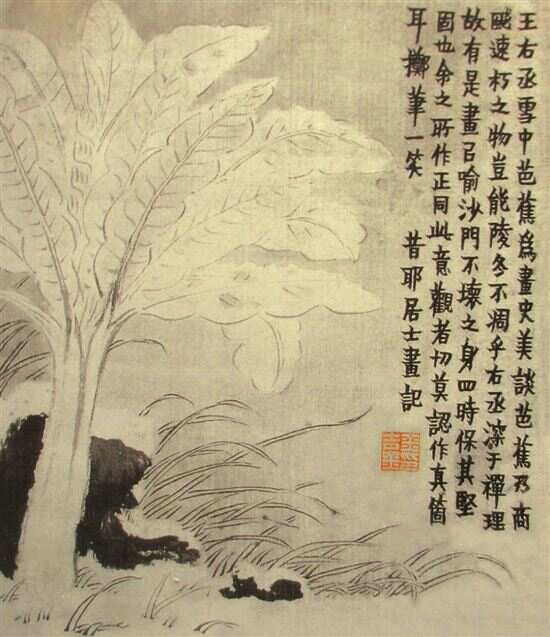 王右丞雪中芭蕉為畫史美談芭蕉乃商
飈速朽之物豈能陵冬不凋乎右丞深于禪理
故有是畫㠯喻沙門不壞之身四時保其堅
固也余之所作正同此意觀者切莫認作真箇
耳擲筆一笑　昔耶居士畫記